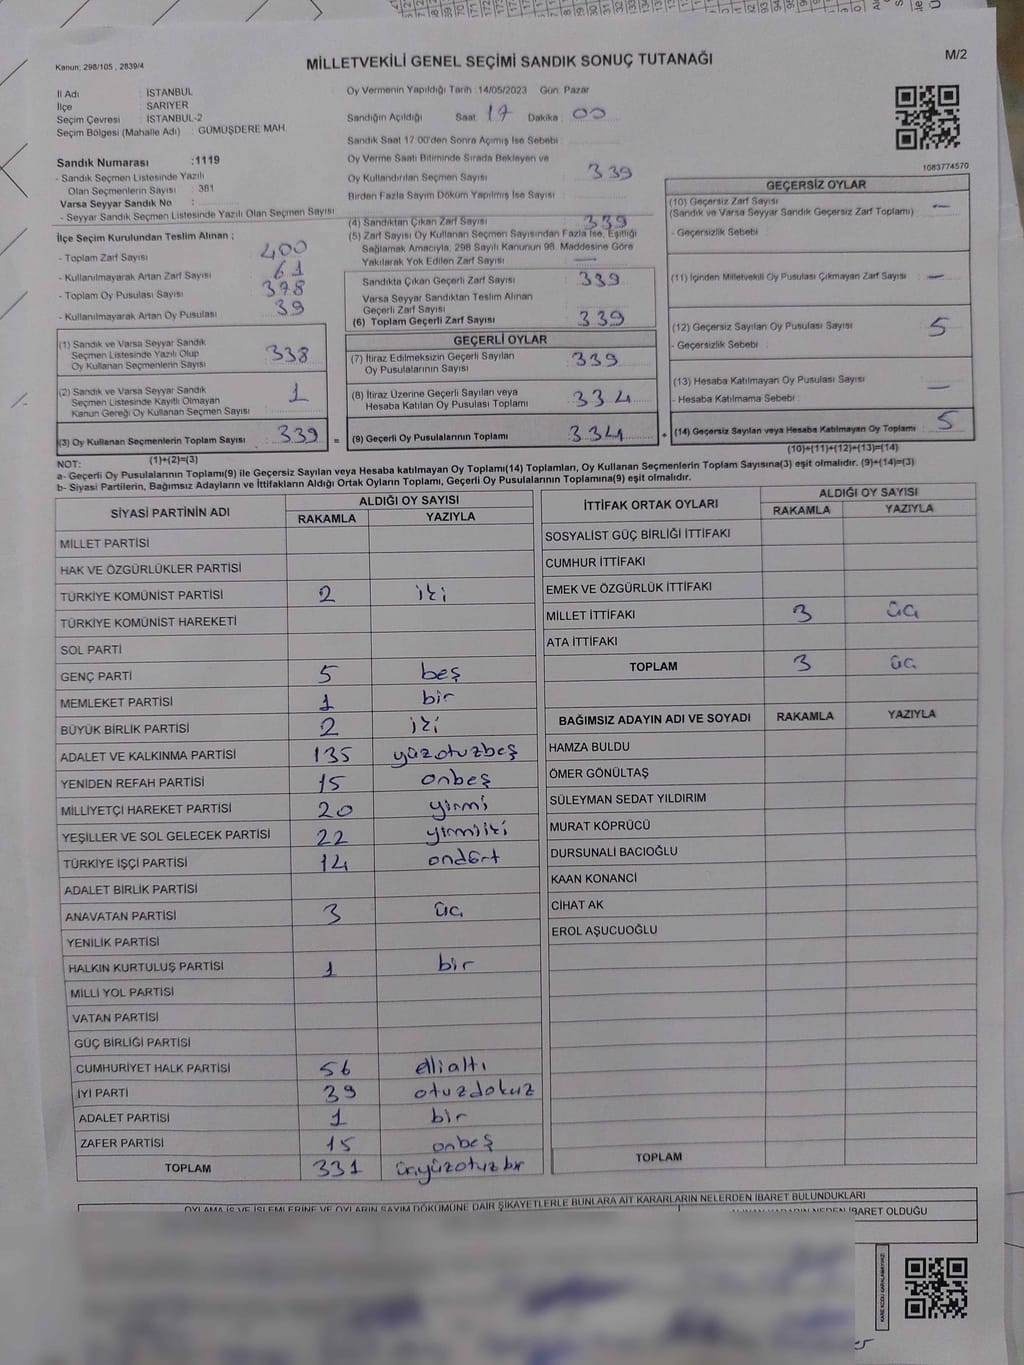 Kanun: 298/105 , 2839/4
MİLLETVEKİLİ GENEL SEÇİMİ SANDIK SONUÇ TUTANAĞI
M/2
İl Adı : İSTANBUL
İlçe : SARIYER
Seçim Çevresi : İSTANBUL-2
Seçim Bölgesi (Mahalle Adı) : GÜMÜŞDERE MAH.
Sandık Numarası :1119
- Sandık Seçmen Listesinde Yazılı
Olan Seçmenlerin Sayısı : 381
Varsa Seyyar Sandık No :
- Seyyar Sandık Seçmen Listesinde Yazılı Olan Seçmen Sayısı :
İlçe Seçim Kurulundan Teslim Alınan ;
- Toplam Zarf Sayısı : 400
- Kullanılmayarak Artan Zarf Sayısı : 61
- Toplam Oy Pusulası Sayısı : 378
- Kullanılmayarak Artan Oy Pusulası : 39
(1) Sandık ve Varsa Seyyar Sandık
Seçmen Listesinde Yazılı Olup
Oy Kullanan Seçmenlerin Sayısı : 338
(2) Sandık ve Varsa Seyyar Sandık
Seçmen Listesinde Kayıtlı Olmayan
Kanun Gereği Oy Kullanan Seçmen Sayısı : 1
(3) Oy Kullanan Seçmenlerin Toplam Sayısı : 339 =
(1)+(2)=(3)
Oy Vermenin Yapıldığı Tarih : 14/05/2023 Gün: Pazar
Sandığın Açıldığı Saat : 17 Dakika : 00
Sandık Saat 17:00'den Sonra Açımış İse Sebebi :
Oy Verme Saati Bitiminde Sırada Bekleyen ve
Oy Kullandırılan Seçmen Sayısı : 339
Birden Fazla Sayım Döküm Yapılmış İse Sayısı :
(4) Sandıktan Çıkan Zarf Sayısı : 339
(5) Zarf Sayısı Oy Kullanan Seçmen Sayısından Fazla İse, Eşitliği
Sağlamak Amacıyla, 298 Sayılı Kanunun 98. Maddesine Göre
Yakılarak Yok Edilen Zarf Sayısı : —
Sandıkta Çıkan Geçerli Zarf Sayısı : 339
Varsa Seyyar Sandıktan Teslim Alınan
Geçerli Zarf Sayısı :
(6) Toplam Geçerli Zarf Sayısı : 339
GEÇERLİ OYLAR
(7) İtiraz Edilmeksizin Geçerli Sayılan
Oy Pusulalarının Sayısı : 339
(8) İtiraz Üzerine Geçerli Sayılan veya
Hesaba Katılan Oy Pusulası Toplamı : 334
(9) Geçerli Oy Pusulalarının Toplamı : 334 +
1083774570
GEÇERSİZ OYLAR
(10) Geçersiz Zarf Sayısı
(Sandık ve Varsa Seyyar Sandık Geçersiz Zarf Toplamı) : —
- Geçersizlik Sebebi :
(11) İçinden Milletvekili Oy Pusulası Çıkmayan Zarf Sayısı : —
(12) Geçersiz Sayılan Oy Pusulası Sayısı : 5
- Geçersizlik Sebebi :
(13) Hesaba Katılmayan Oy Pusulası Sayısı : —
- Hesaba Katılmama Sebebi :
(14) Geçersiz Sayılan veya Hesaba Katılmayan Oy Toplamı : 5
(10)+(11)+(12)+(13)=(14)
NOT:
a- Geçerli Oy Pusulalarının Toplamı(9) ile Geçersiz Sayılan veya Hesaba katılmayan Oy Toplamı(14) Toplamları, Oy Kullanan Seçmenlerin Toplam Sayısına(3) eşit olmalıdır. (9)+(14)=(3)
b- Siyasi Partilerin, Bağımsız Adayların ve İttifakların Aldığı Ortak Oyların Toplamı, Geçerli Oy Pusulalarının Toplamına(9) eşit olmalıdır.
SİYASİ PARTİNİN ADI ALDIĞI OY SAYISI
RAKAMLA YAZIYLA
MİLLET PARTİSİ
HAK VE ÖZGÜRLÜKLER PARTİSİ
TÜRKİYE KOMÜNİST PARTİSİ 2 iki
TÜRKİYE KOMÜNİST HAREKETİ
SOL PARTİ
GENÇ PARTİ 5 beş
MEMLEKET PARTİSİ 1 bir
BÜYÜK BİRLİK PARTİSİ 2 iki
ADALET VE KALKINMA PARTİSİ 135 yüzotuzbeş
YENİDEN REFAH PARTİSİ 15 onbeş
MİLLİYETÇİ HAREKET PARTİSİ 20 yirmi
YEŞİLLER VE SOL GELECEK PARTİSİ 22 yirmiiki
TÜRKİYE İŞÇİ PARTİSİ 14 ondört
ADALET BİRLİK PARTİSİ
ANAVATAN PARTİSİ 3 üç
YENİLİK PARTİSİ
HALKIN KURTULUŞ PARTİSİ 1 bir
MİLLİ YOL PARTİSİ
VATAN PARTİSİ
GÜÇ BİRLİĞİ PARTİSİ
CUMHURİYET HALK PARTİSİ 56 ellialtı
İYİ PARTİ 39 otuzdokuz
ADALET PARTİSİ 1 bir
ZAFER PARTİSİ 15 onbeş
TOPLAM 331 üçyüzotuzbir
İTTİFAK ORTAK OYLARI ALDIĞI OY SAYISI
RAKAMLA YAZIYLA
SOSYALİST GÜÇ BİRLİĞİ İTTİFAKI
CUMHUR İTTİFAKI
EMEK VE ÖZGÜRLÜK İTTİFAKI
MİLLET İTTİFAKI 3 üç
ATA İTTİFAKI
TOPLAM 3 üç
BAĞIMSIZ ADAYIN ADI VE SOYADI RAKAMLA YAZIYLA
HAMZA BULDU
ÖMER GÖNÜLTAŞ
SÜLEYMAN SEDAT YILDIRIM
MURAT KÖPRÜCÜ
DURSUNALİ BACIOĞLU
KAAN KONANCİ
CİHAT AK
EROL AŞUCUOĞLU
TOPLAM
OYLAMA İŞ VE İŞLEMLERİNE VE OYLARIN SAYIM DÖKÜMÜNE DAİR ŞİKAYETLERLE BUNLARA AİT KARARLARIN NELERDEN İBARET BULUNDUKLARI
ALINAN KARARIN NEDEN İBARET OLDUĞU